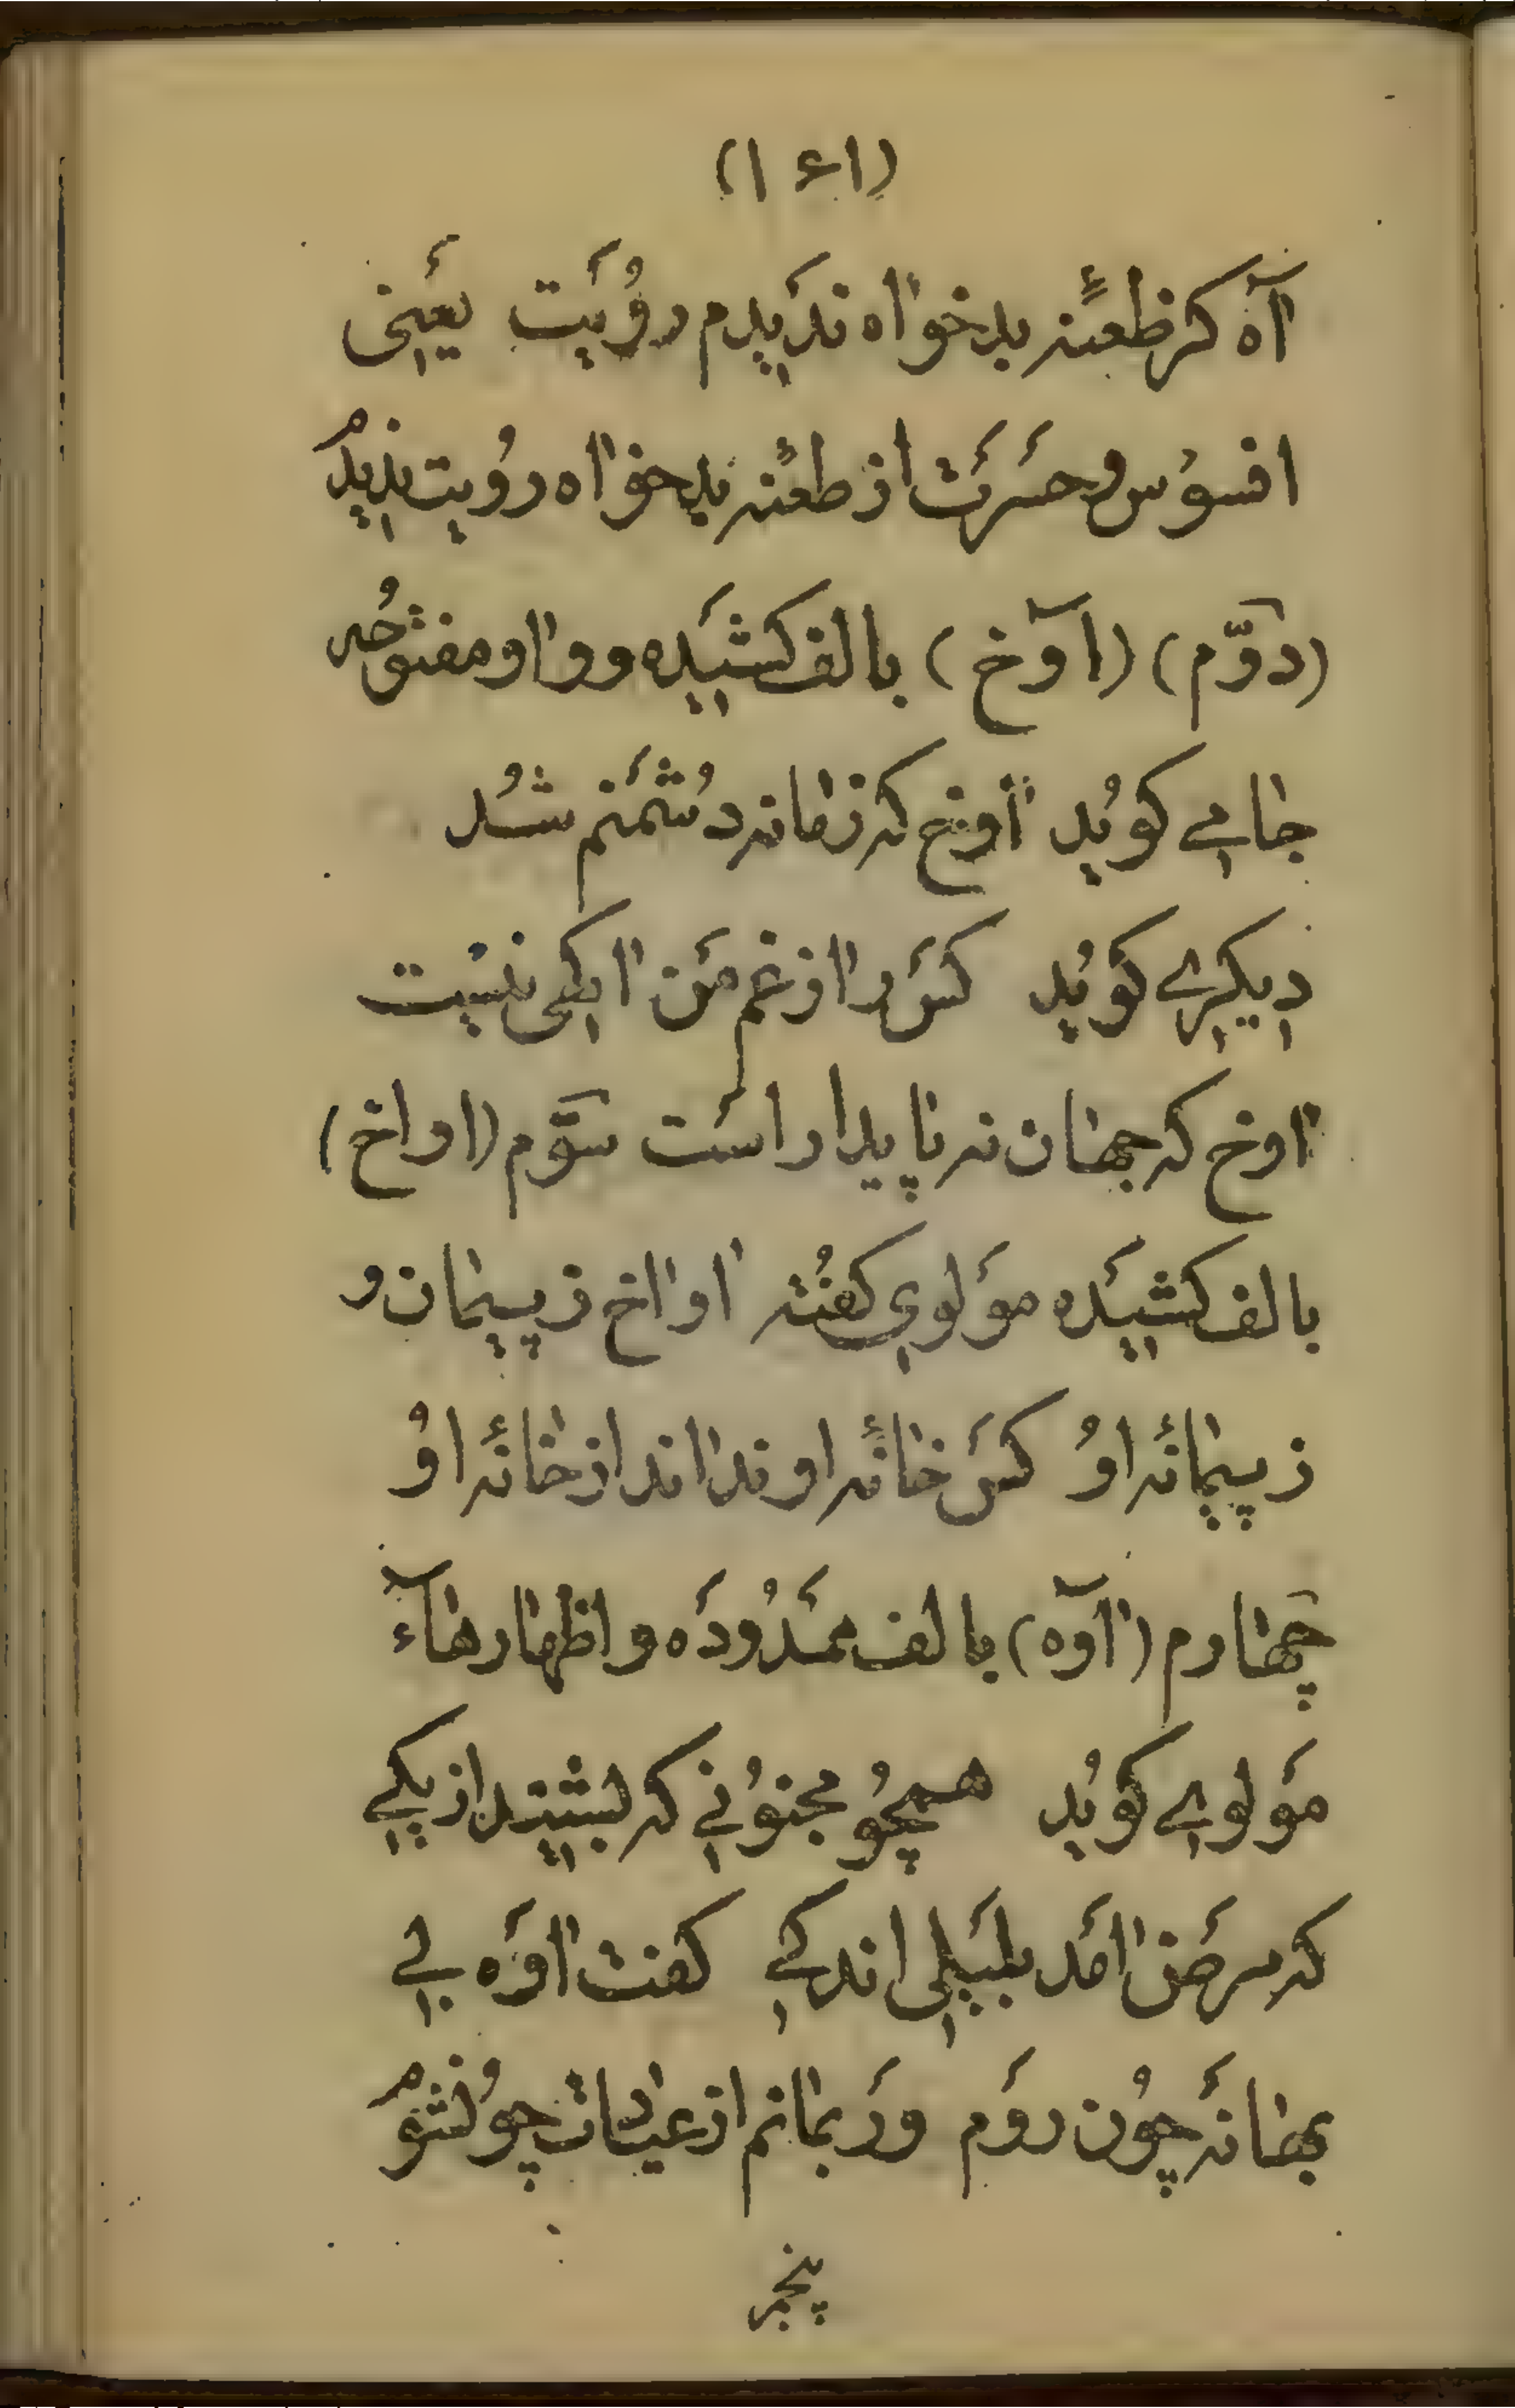 (۱۶۱)
آه کز طعنهٔ بدخواه ندیدم رویت یعنی
افسوس و حسرت از طعنهٔ بدخواه رویت ندیدم
(دوّم) (آوخ) بالف کشیده و واو مفتوحه
جامی کوید آوخ که زمانه دشمنم شد
دیکری کوید کس را از غم من اکهی نیست
آوخ که جهان نه ناپیدار است سوّم (اواخ)
بالف کشیده مولوی کفته اواخ ز پیمان و
ز پیمانهٔ او کس خانهٔ او نداند از خانهٔ او
چهارم (آوه) بالف ممدوده و اظهار هاء
مولوی کوید همچو مجنونی که بشنید از یکی
که مرض آمد بلیلی اندکی کفت آوه بی
بهانه چون روم ور بمانم از عیادت چو نشوم
پنجم